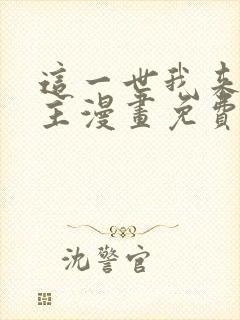 這一世我来
主漫畫免費
沈警官